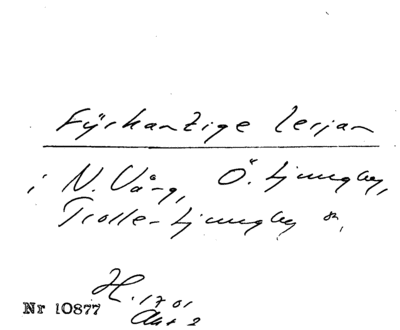 Fyrkantige Lerjan
i N. Vång, Ö. Ljungby,
Trolle-Ljungby &,
H. 1701
Akt 2
Nr 10877